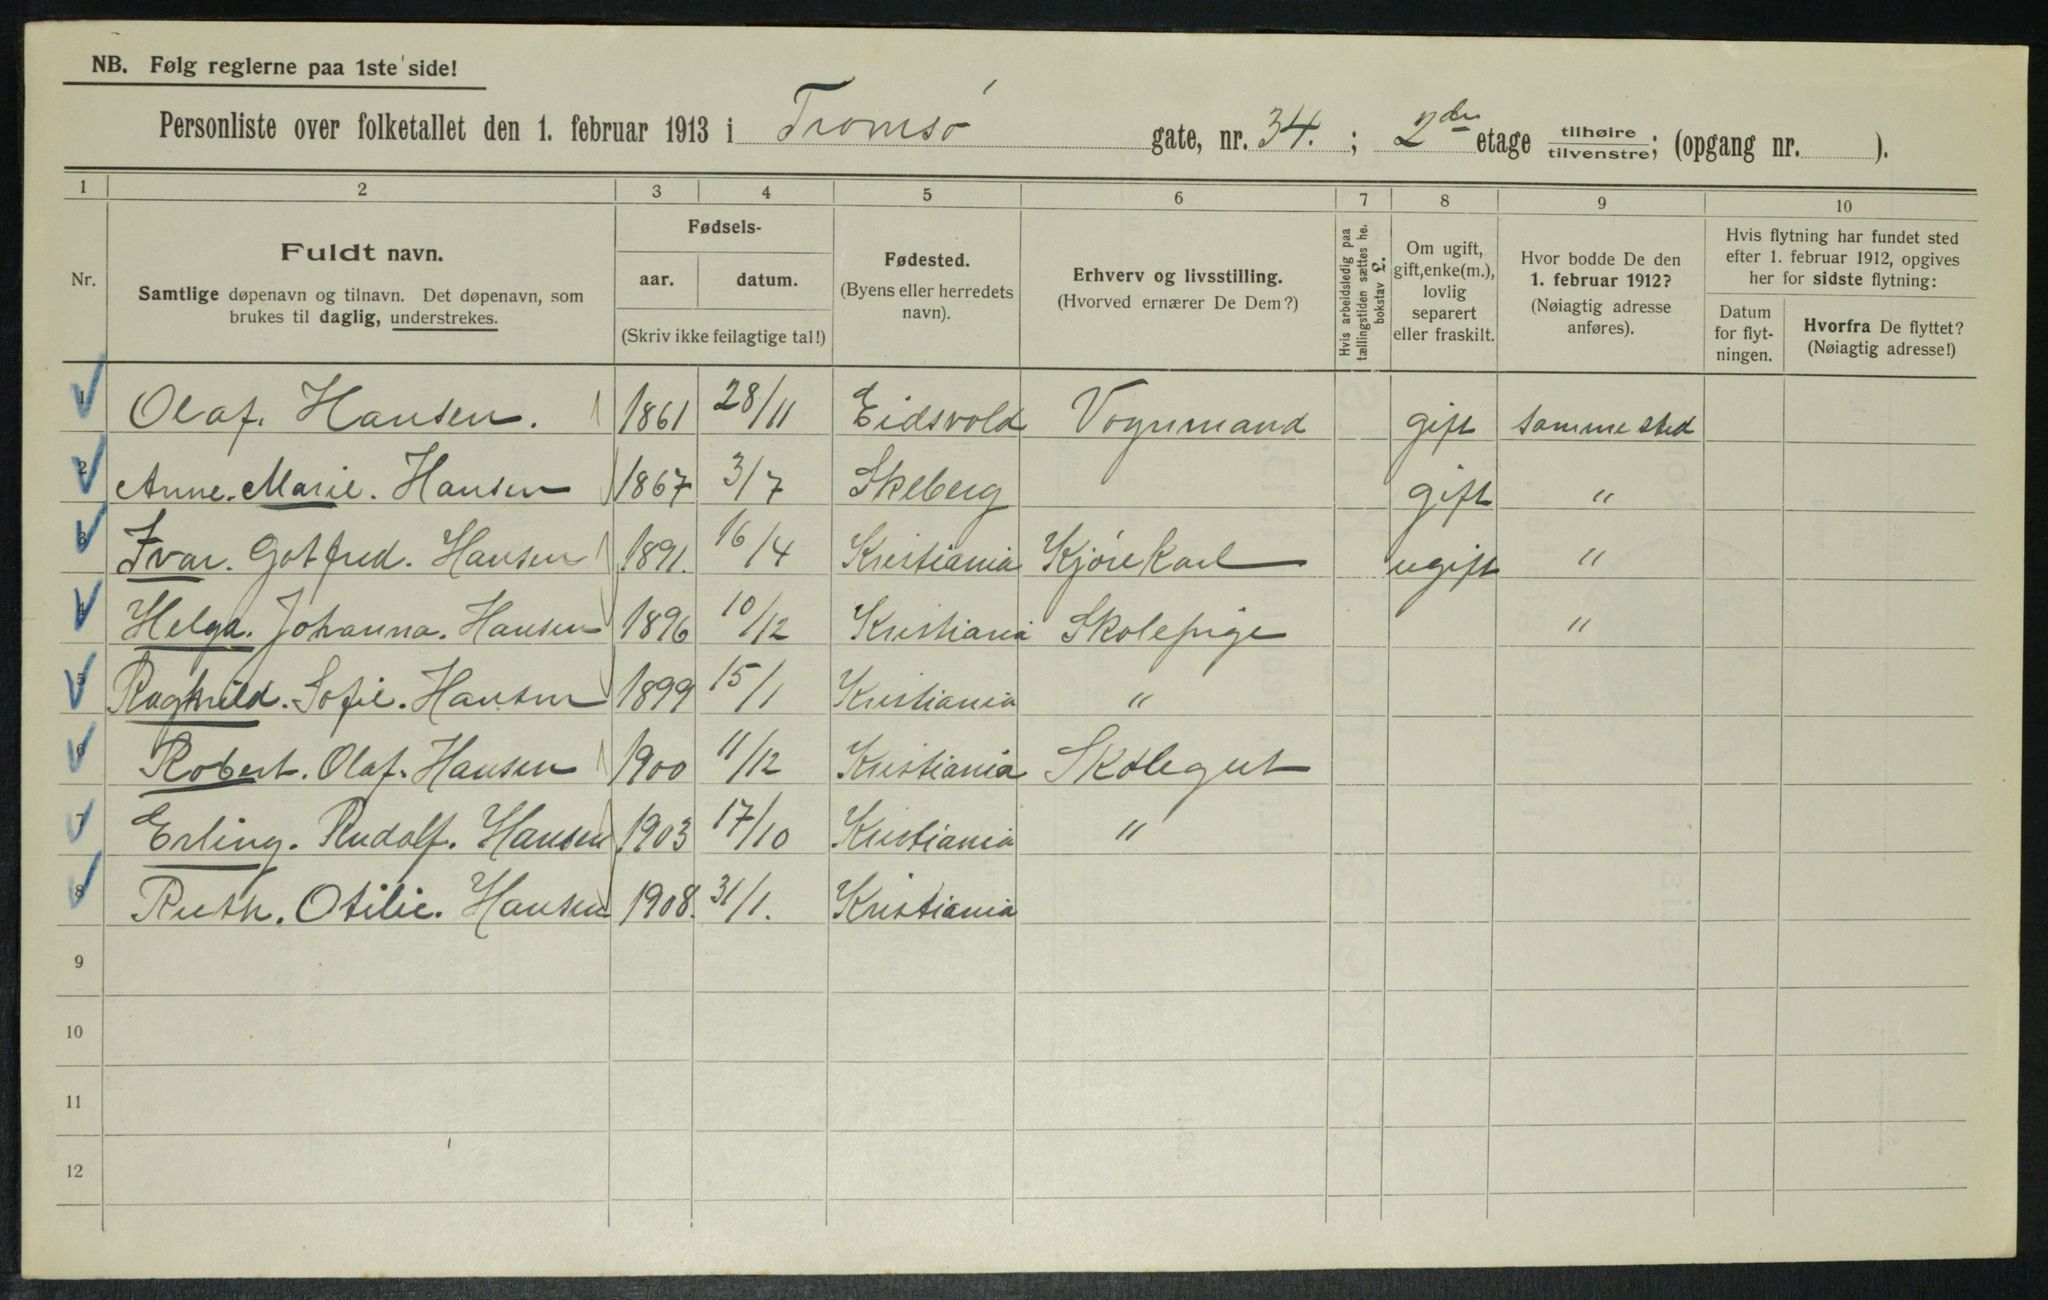 NB. Følg reglerne paa 1ste side!
Personliste over folketallet den 1. februar 1913 i Tromsø gate, nr. 34. ; 2den etage tilhøire tilvenstre; (opgang nr. ).
1 2 3 4 5 6 7 8 9 10
Nr.
Fuldt navn.
Samtlige døpenavn og tilnavn. Det døpenavn, som
brukes til daglig, understrekes.
Fødsels-
aar. datum.
(Skriv ikke feilagtige tal!)
Fødested.
(Byens eller herredets
navn).
Erhverv og livsstilling.
(Hvorved ernærer De Dem?)
Hvis arbeidsledig paa
tællingstiden sættes he.
bokstav L.
Om ugift,
gift, enke(m.),
lovlig
separert
eller fraskilt.
Hvor bodde De den
1. februar 1912?
(Nøiagtig adresse
anføres).
Hvis flytning har fundet sted
efter 1. februar 1912, opgives
her for sidste flytning:
Datum
for flyt-
ningen.
Hvorfra De flyttet?
(Nøiagtig adresse!)
1 Olaf. Hansen. 1861 28/11 Eidsvold Vognmand gift samme sted
2 Anne. Marie. Hansen 1867 3/7 Skeberg gift "
3 Ivar. Gotfred. Hansen 1891. 16/4 Kristiania Kjørekarl ugift "
4 Helga. Johanna. Hansen 1896 10/12 Kristiania Skolepige "
5 Raghnild. Sofie. Hansen 1899 15/1 Kristiania "
6 Robert. Olaf. Hansen 1900 11/12 Kristiania Skolegut
7 Erling. Rudolf. Hansen 1903 17/10 Kristiania "
8 Ruth. Otilie. Hansen 1908. 31/1. Kristiania
9
10
11
12